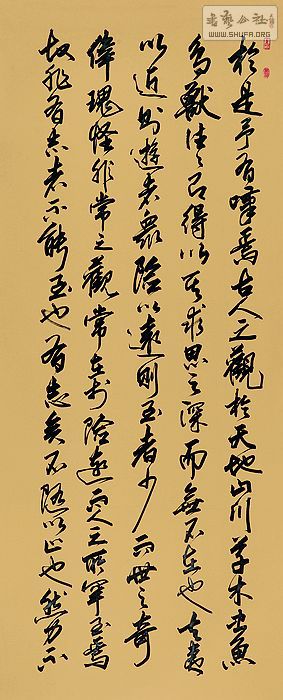 書藝公社
WWW.SHUFA.ORG
於是予有嘆焉古人之觀於天地山川草木虫魚
鳥獸往々有得以其求思之深而無不在也夫夷
以近則遊者眾險以遠則至者少而世之奇
偉瑰怪非常之觀常在於險遠而人之所罕至焉
故非有志者不能至也有志矣不隨以止也然力不